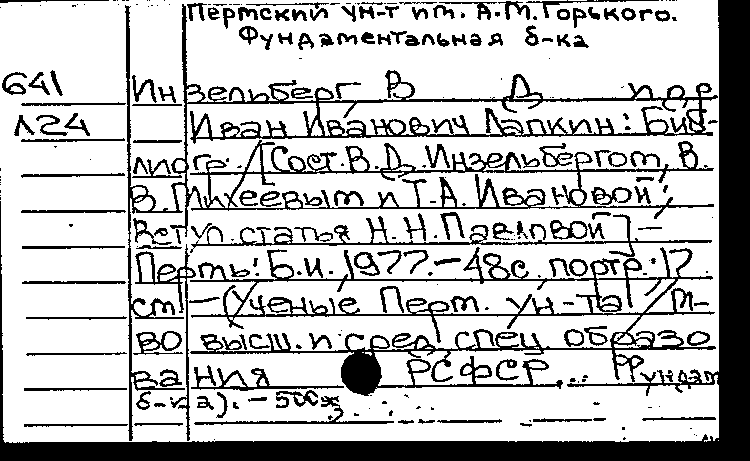 Пермский ун-т им. А.М.Горького.
Фундаментальная б-ка
641 Инзельберг В Д и др
Л24 Иван Иванович Лапкин: Биб-
лиогр. / [Сост. В. Д. Инзельбергом, В.
В. Михеевым и Т. А. Ивановой;
Вступ. статья Н. Н. Павловой]. —
Пермь: Б.и., 1977. — 48с. портр.; 17
см. — (Ученые Перм. ун-та / М-
во высш. и сред. спец. образо
вания РСФСР... Фундам
б-ка). — 500э